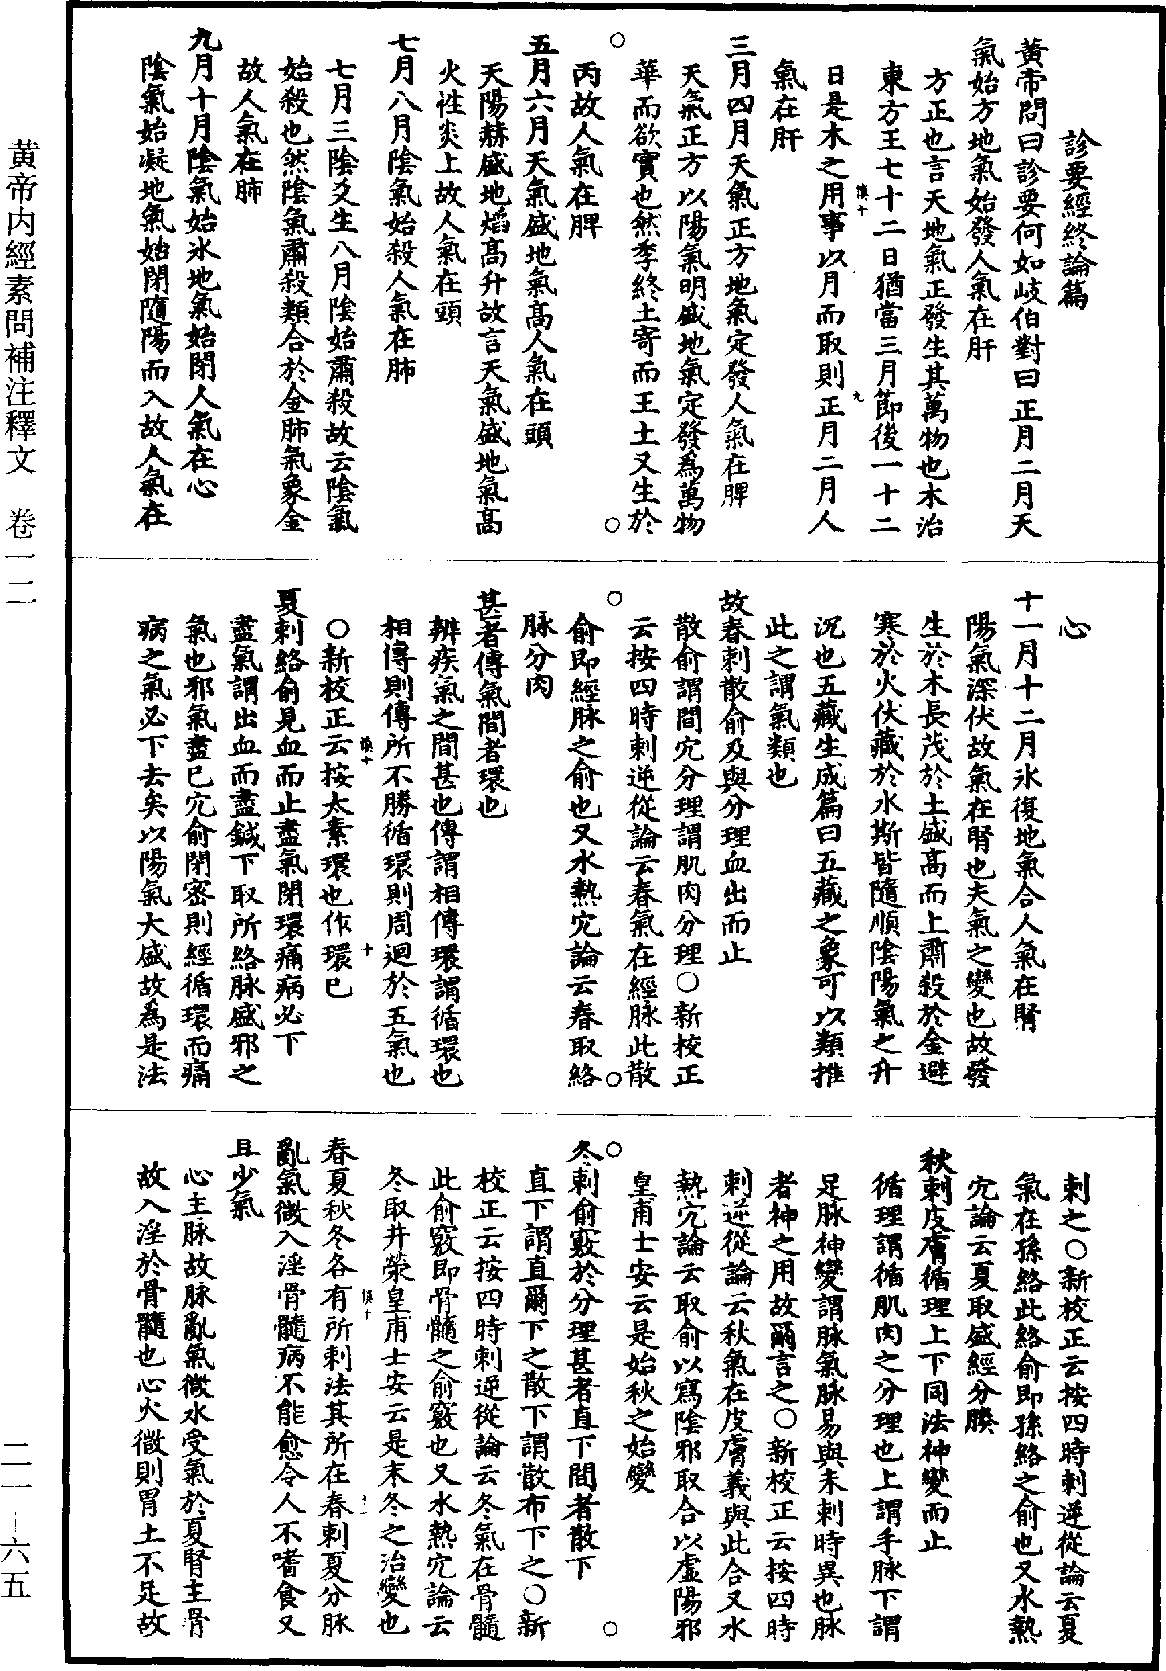 診要經終論篇
黃帝問曰診要何如岐伯對曰正月二月天
氣始方地氣始發人氣在肝
方正也言天地氣正發生其萬物也木治
東方王七十二日猶當三月節後一十二
日是木之用事以月而取則正月二月人
氣在肝
三月四月天氣正方地氣定發人氣在脾
天氣正方以陽氣明盛地氣定發爲萬物
華而欲實也然季終土寄而王土又生於
丙故人氣在脾
五月六月天氣盛地氣高人氣在頭
天陽赫盛地焰高升故言天氣盛地氣高
火性炎上故人氣在頭
七月八月陰氣始殺人氣在肺
七月三陰爻生八月陰始肅殺故云陰氣
始殺也然陰氣肅殺類合於金肺氣象金
故人氣在肺
九月十月陰氣始冰地氣始閉人氣在心
陰氣始凝地氣始閉隨陽而入故人氣在
心
十一月十二月冰復地氣合人氣在腎
陽氣深伏故氣在腎也夫氣之變也故發
生於木長茂於土盛高而上肅殺於金避
寒於火伏藏於水斯皆隨順陰陽氣之升
沉也五藏生成篇曰五藏之象可以類推
此之謂氣類也
故春刺散俞及與分理血出而止
散俞謂間穴分理謂肌肉分理○新校正
云按四時刺逆從論云春氣在經脉此散
俞即經脉之俞也又水熱穴論云春取絡
脉分肉
甚者傳氣間者環也
辨疾氣之間甚也傳謂相傳環謂循環也
相傳則傳所不勝循環則周迴於五氣也
○新校正云按太素環也作環已
夏刺絡俞見血而止盡氣閉環痛病必下
盡氣謂出血而盡鍼下取所絡脉盛邪之
氣也邪氣盡已穴俞閉密則經循環而痛
病之氣必下去矣以陽氣大盛故爲是法
刺之○新校正云按四時刺逆從論云夏
氣在孫絡此絡俞即孫絡之俞也又水熱
穴論云夏取盛經分腠
秋刺皮膚循理上下同法神變而止
循理謂循肌肉之分理也上謂手脉下謂
足脉神變謂脉氣脉易與未刺時異也脉
者神之用故爾言之○新校正云按四時
刺逆從論云秋氣在皮膚義與此合又水
熱穴論云取俞以寫陰邪取合以虛陽邪
皇甫士安云是始秋之始變
冬刺俞竅於分理甚者直下間者散下
直下謂直爾下之散下謂散布下之○新
校正云按四時刺逆從論云冬氣在骨髓
此俞竅即骨髓之俞竅也又水熱穴論云
冬取井滎皇甫士安云是末冬之治變也
春夏秋冬各有所刺法其所在春刺夏分脉
亂氣微入淫骨髓病不能愈令人不嗜食又
且少氣
心主脉故脉亂氣微水受氣於夏腎主骨
故入淫於骨髓也心火微則胃土不足故
黃帝内經素問補注釋文　卷一二
二一—六五